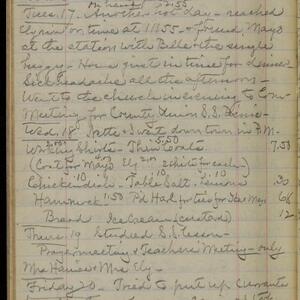 on hand 50.55
Tues. 17. Another hot day - reached
Elyria on time at 11.55 & found Mayo
at the station with Belle & the single
buggy - Home just in time for dinner
Sick headache all the afternoon -
Went to the church in evening to Com
Meeting for County Union S.S.
Wed. 18 & I went down town in P.M.
Shirts - Overalls 7.50
(Coat for Mayo & 2 shirts for each)
Table Salt .30
Hammock 1.50 P'd Had for ties for & Mayo 66
Bread Ice Cream (custard) 12
Thurs. 19 Studied S.S. lesson -
Prayer meeting & Teachers' Meeting - only
Mrs & Mrs Ely -
Friday 20 - Tried to put up Currants